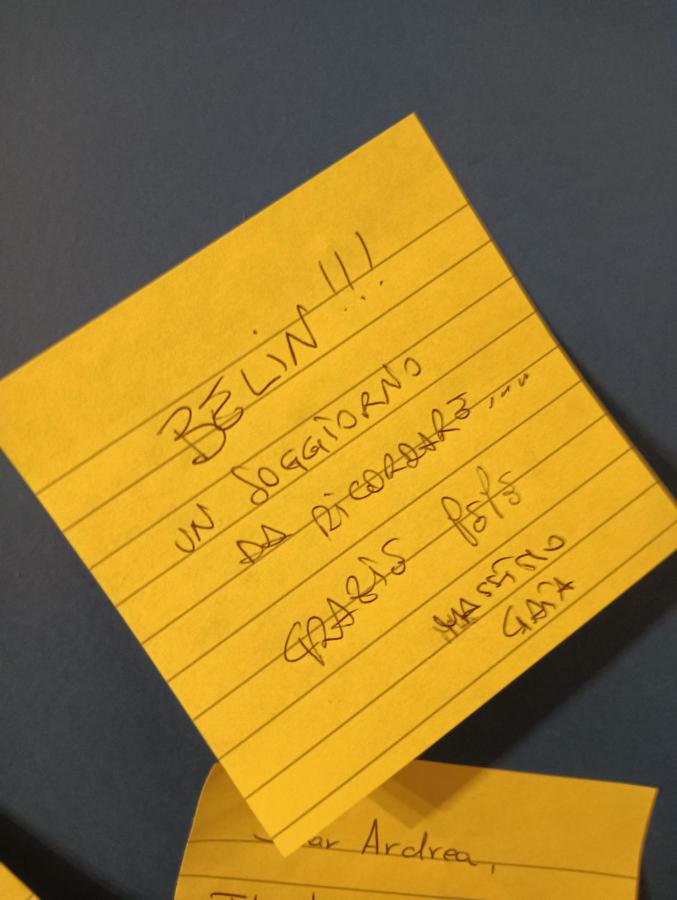 BELIN!!!
UN SOGGIORNO
DA RICORDARE....
GRAZIE PEPE
MASSIMO
GAIA
Dear Andrea,